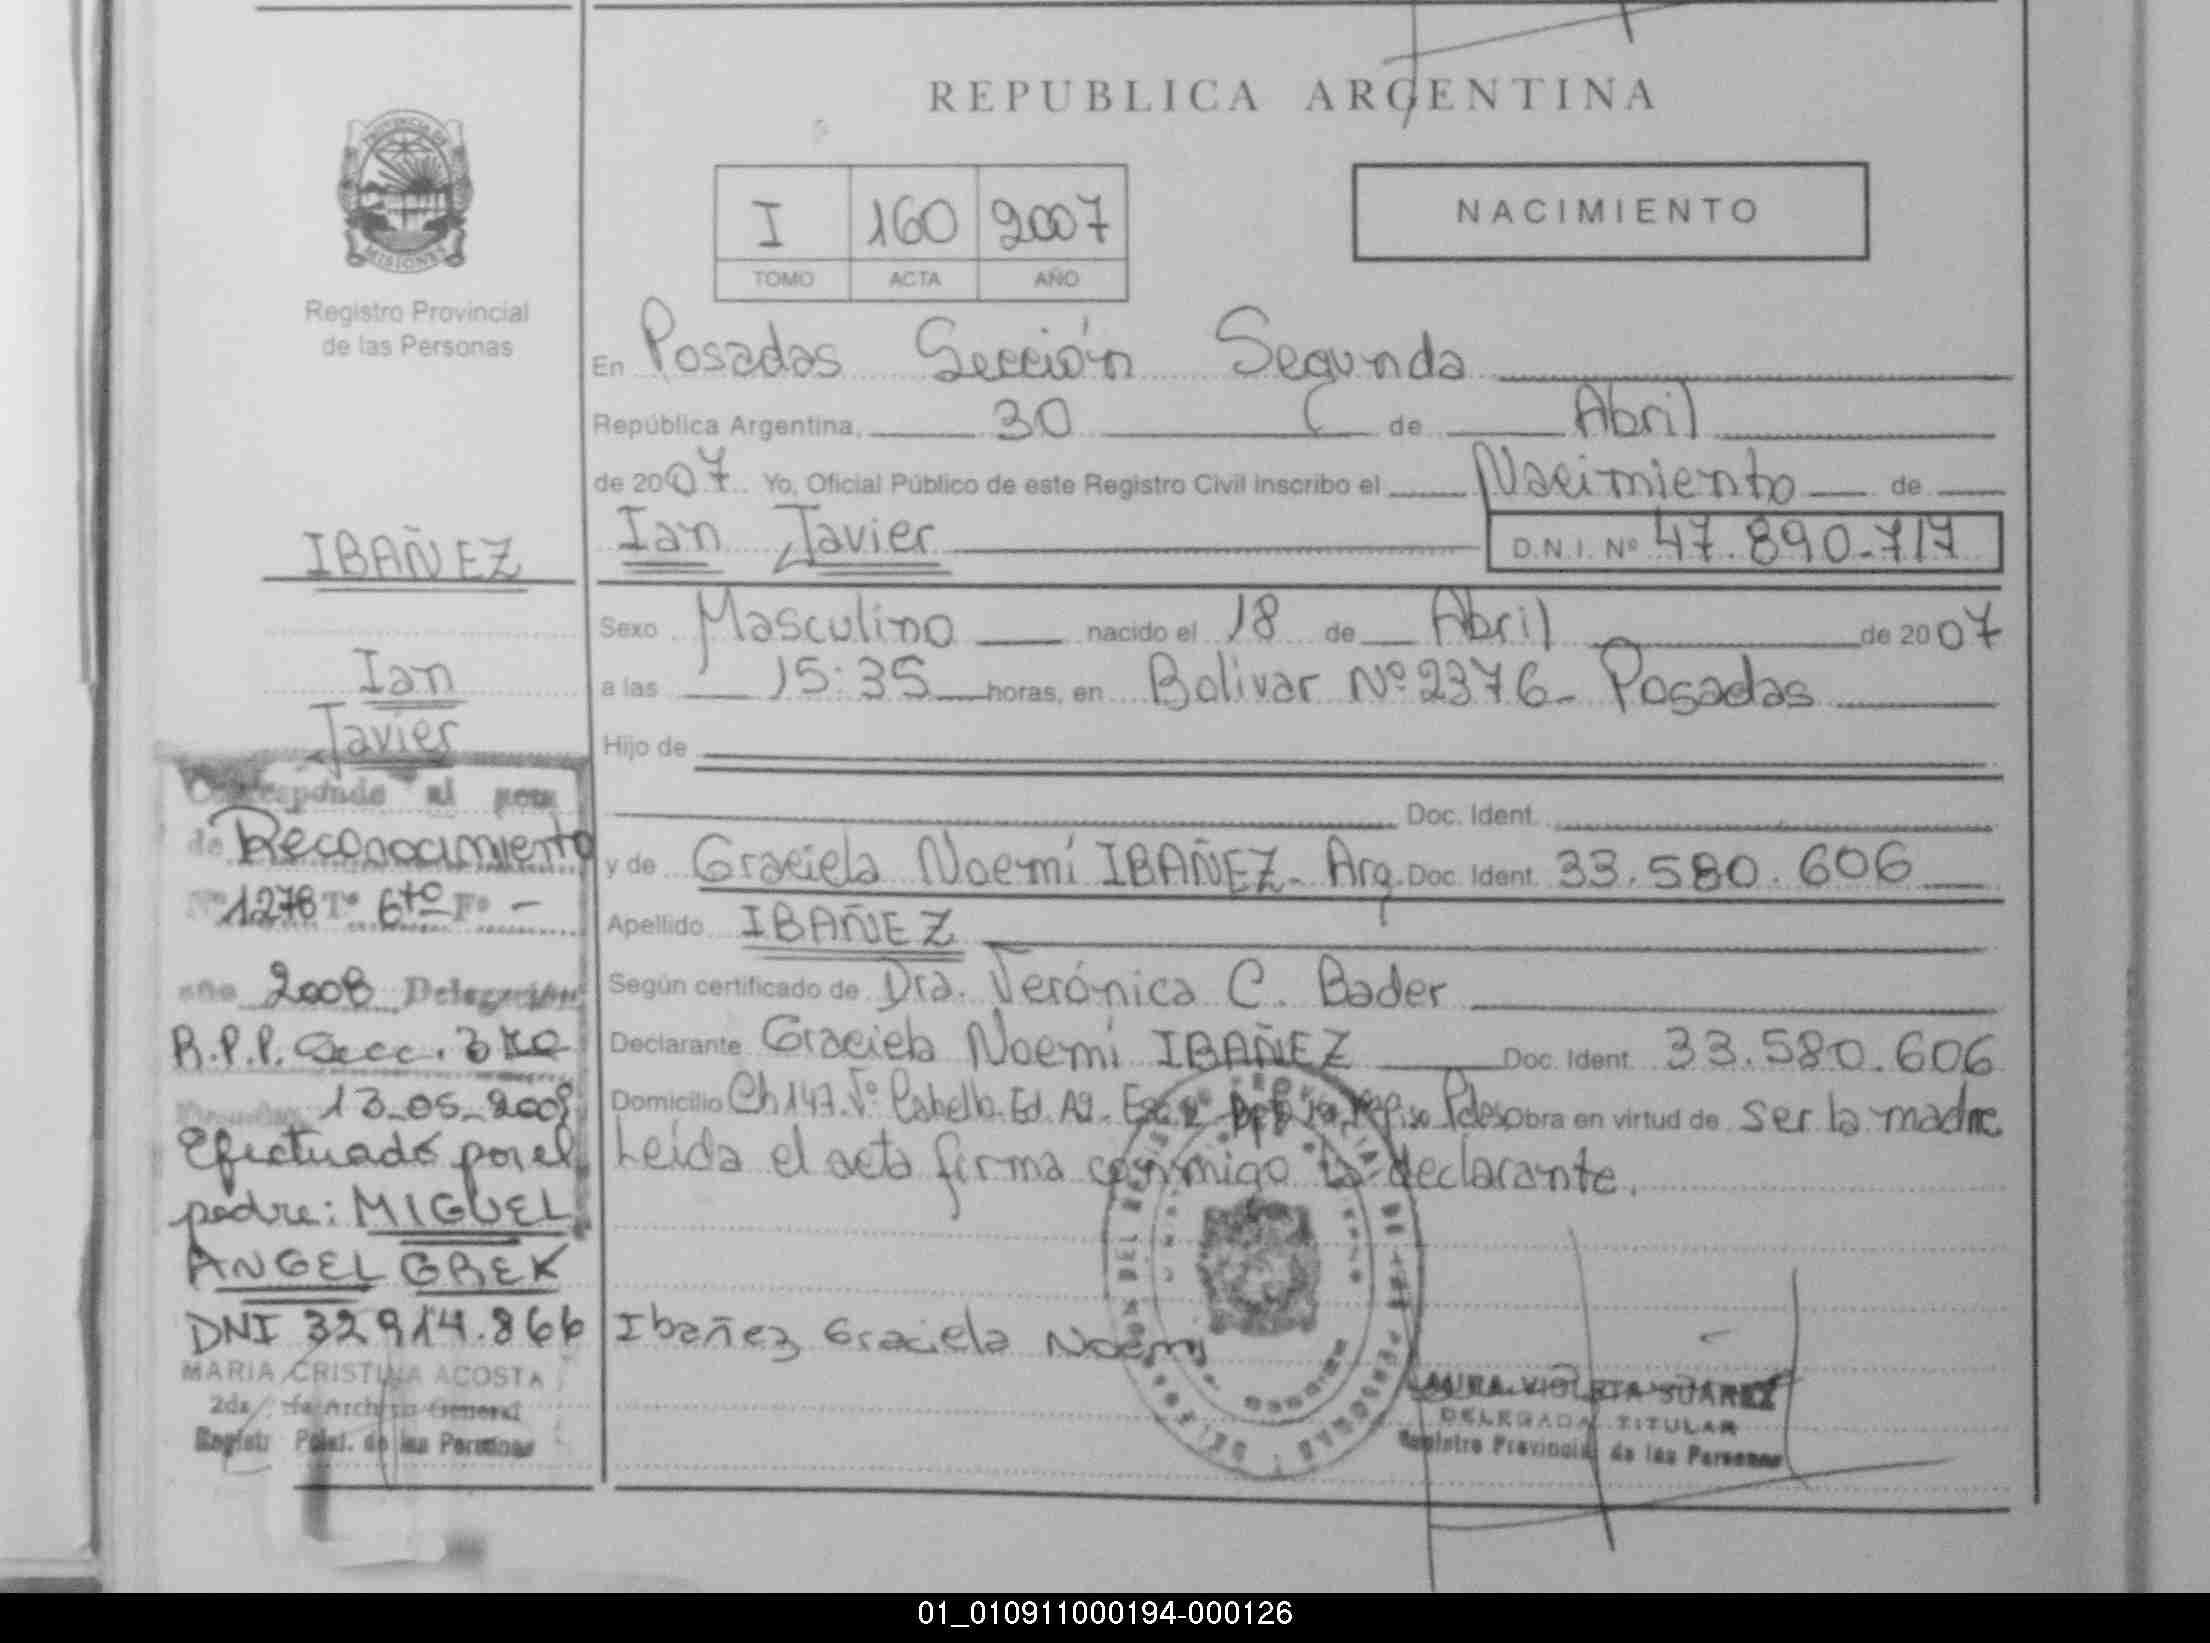 REPUBLICA ARGENTINA
PROVINCIA DE
MISIONES
Registro Provincial
de las Personas
I 160 2007
TOMO ACTA AÑO
NACIMIENTO
En Posadas Sección Segunda
República Argentina, 30 de Abril
de 2007 Yo, Oficial Público de este Registro Civil inscribo el Nacimiento de
Ian Javier D.N.I. Nº 47.890.717
Sexo Masculino nacido el 18 de Abril de 2007
a las 15:35 horas, en Bolivar Nº 2376- Posadas
Hijo de
Doc. Ident.
y de Graciela Noemí IBAÑEZ- Arg. Doc. Ident. 33.580.606
Apellido IBAÑEZ
Según certificado de Dra. Verónica C. Bader
Declarante Graciela Noemí IBAÑEZ Doc. Ident. 33.580.606
Domicilio Ch 147. Vº Cabello. Ed. A2- Obra en virtud de ser la madre
Leída el acta firma conmigo la declarante.
Ibañez Graciela Noemi
LAURA VIOLETA SUAREZ
DELEGADA TITULAR
Registro Provincial de las Personas
IBAÑEZ
Ian
Javier
Corresponde al
de Reconocimiento
Nº 1278 Tº 6to Fº -
año 2008 Delegación
R.P.P. Secc. 3ra
13-05-2008
Efectuado por el
padre: MIGUEL
ANGEL GREK
DNI 32914.866
MARIA CRISTINA ACOSTA
2da Archivo General
Registr de las Personas
01_010911000194-000126